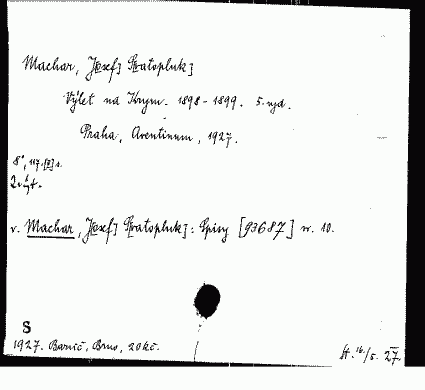 Machar, J[osef] S[vatopluk]
Výlet na Krym. 1898-1899. 5. vyd.
Praha, Aventinum, 1927.
8°, 117, [2] s.
2 výt.
v. Machar, J[osef] S[vatopluk]: Spisy [93687] sv. 10.
S
1927. Barvič, Brno, 20 Kč.
St. 16/5. 27